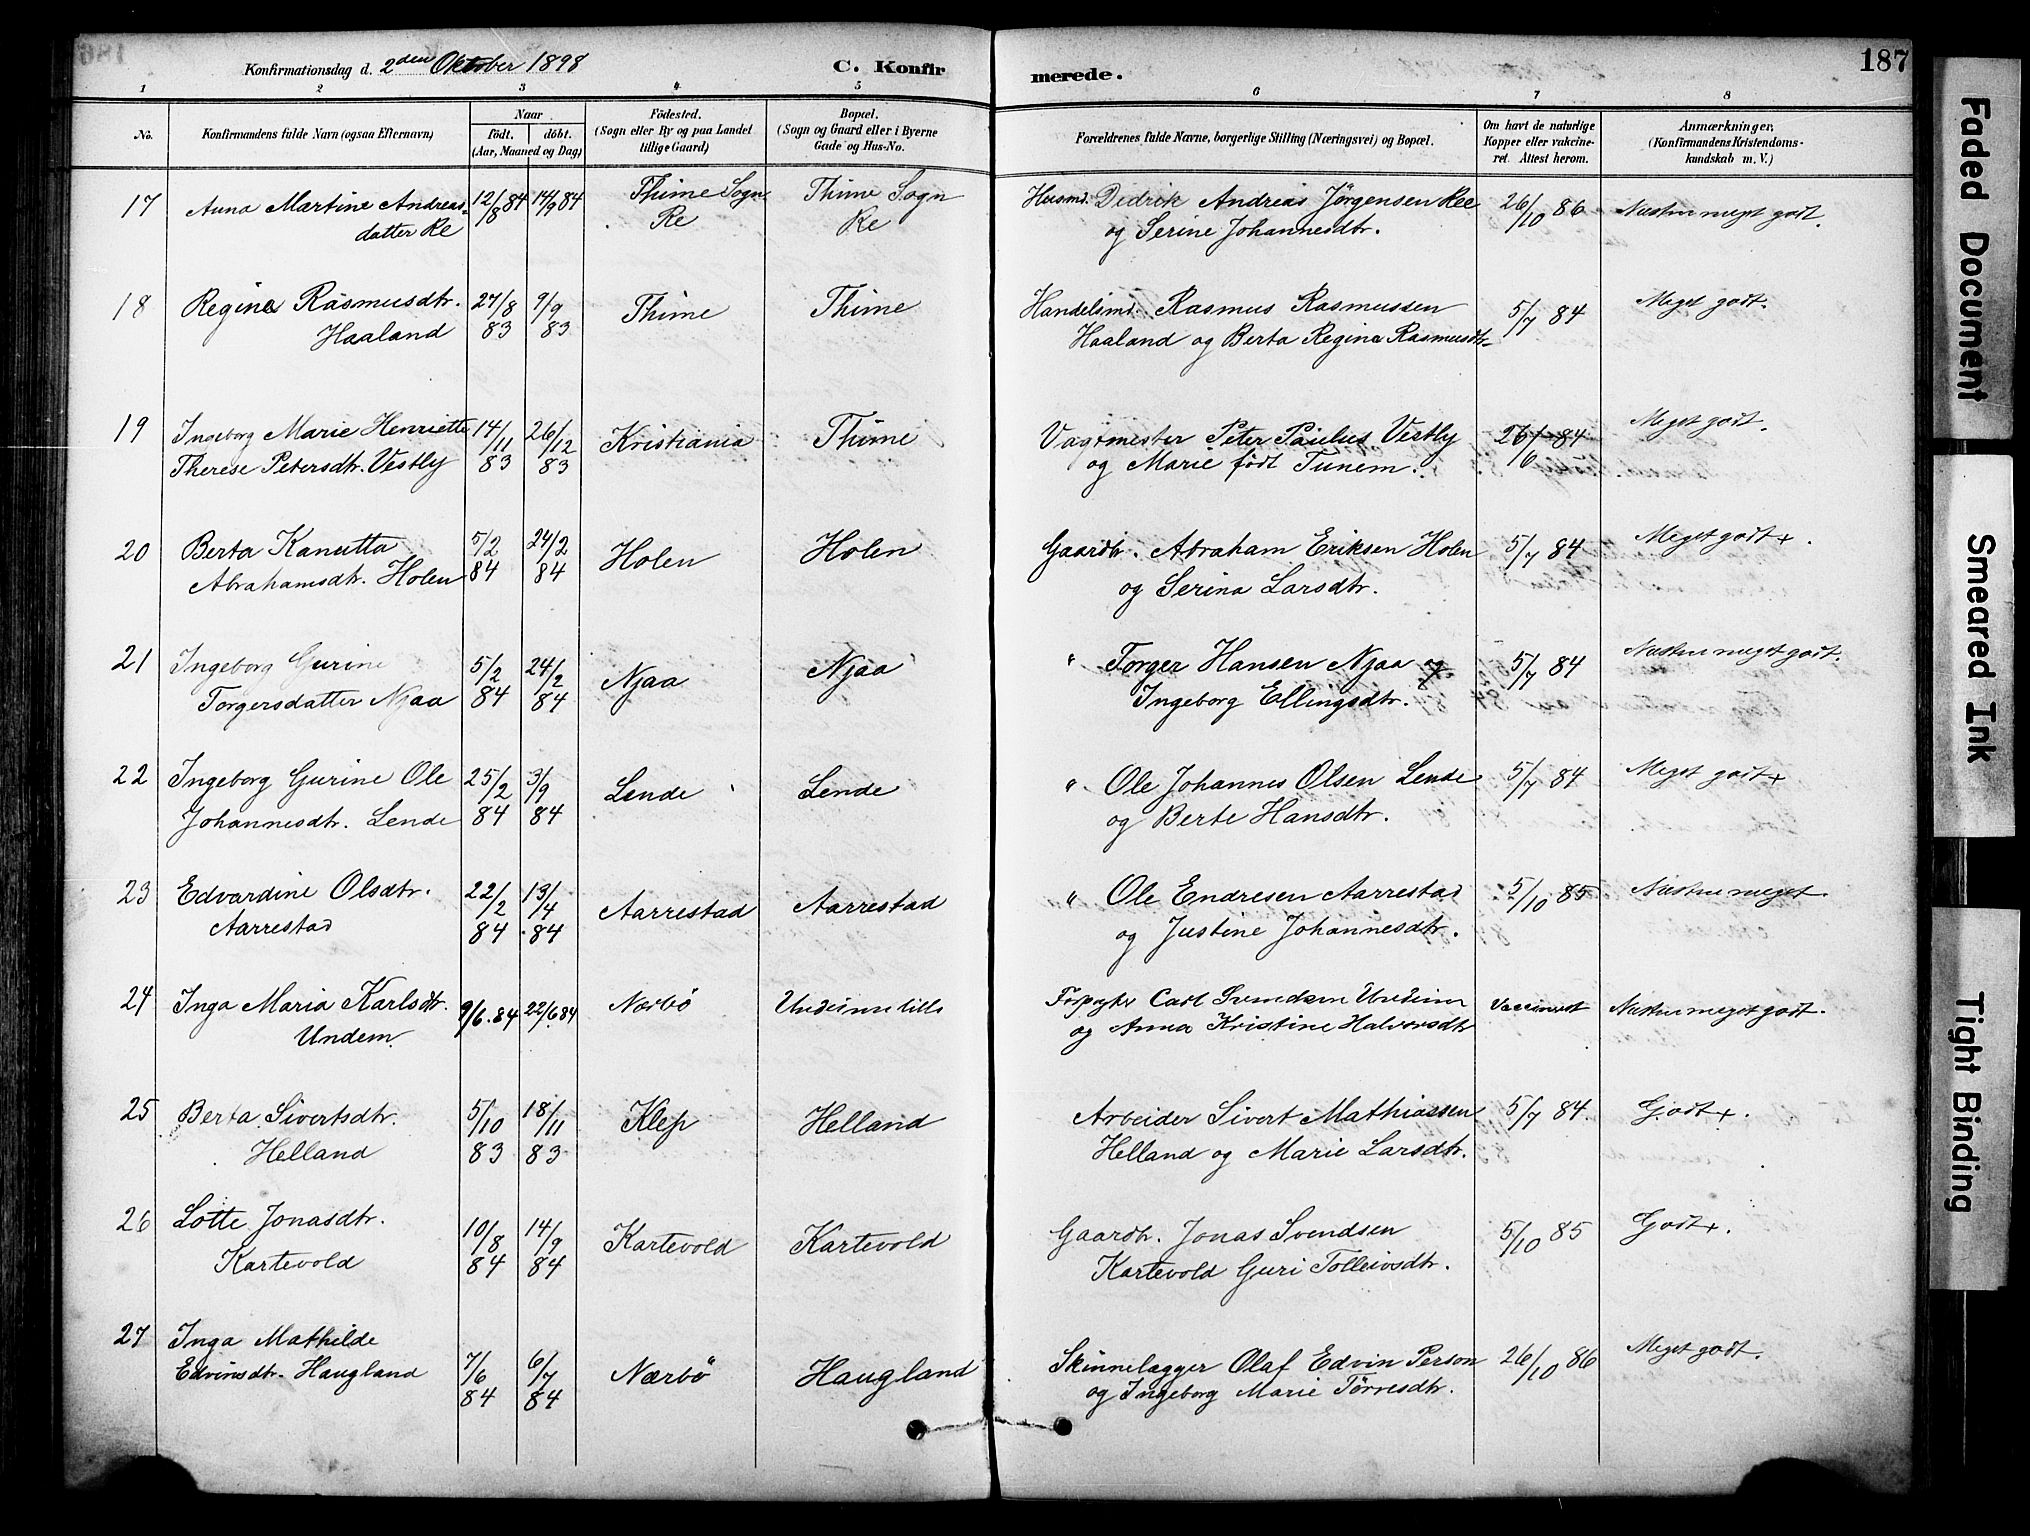 186
187
Konfirmationsdag d. 2den Oktober 1898
C. Konfirmerede.
1 2 3 4 5 6 7 8
No.
Konfirmandens fulde Navn (ogsaa Efternavn)
Naar
födt. döbt.
(Aar, Maaned og Dag)
Födested.
(Sogn eller By og paa Landet
tillige Gaard)
Bopæl.
(Sogn og Gaard eller i Byerne
Gade og Hus-No.
Forældrenes fulde Navne, borgerlige Stilling (Næringsvei) og Bopæl.
Om havt de naturlige
Kopper eller vakcine-
ret. Attest herom.
Anmærkninger,
(Konfirmandens Kristendoms-
kundskab m. V.)
17 Anna Martine Andreas- 12/8 84 14/9 84 Thime Sogn Thime Sogn Husmd. Didrik Andreas Jörgensen Ree 26/10 86 Næsten meget godt.
datter Re Re Re og Serine Johannesdtr.
18 Regine Rasmusdtr. 27/8 9/9 Thime Thime Handelsmd. Rasmus Rasmussen 5/7 84 Meget godt.
Haaland 83 83 Haaland og Berta Regine Rasmusdtr
19 Ingeborg Marie Henriette 14/11 26/12 Kristiania Thime Vagtmester Peter Paulus Vestly 26/6 84 Meget godt.
Therese Petersdtr. Vestly 83 83 og Marie födt Tunem.
20 Berta Kanutta 5/2 24/2 Holen Holen Gaardbr. Abraham Eriksen Holen 5/7 84 Meget godt+.
Abrahamsdtr. Holen 84 84 og Serina Larsdtr.
21 Ingeborg Gurine 5/2 24/2 Njaa Njaa " Torger Hansen Njaa og 5/7 84 Næsten meget godt.
Torgersdatter Njaa 84 84 Ingeborg Ellingsdtr.
22 Ingeborg Gurine Ole 25/2 3/9 Lende Lende " Ole Johannes Olsen Lende 5/7 84 Meget godt+
Johannesdtr. Lende 84 84 og Berte Hansdtr.
23 Edvardine Olsdtr. 22/2 13/4 Aarrestad Aarrestad " Ole Endresen Aarrestad 5/10 85 Næsten meget.
Aarrestad 84 84 og Justine Johannesdtr.
24 Inga Maria Karlsdtr. 9/6.84 22/6 84 Nærbö Carl Svendsen Vaccineret Næsten meget godt.
Undem og Anna Kristine Halvorsdtr
25 Berta Sivertsdtr. 5/10 18/11 Klep Helland Arbeider Sivert Mathiassen 5/7 84. Godt+.
Helland 83 83 Helland og Marie Larsdtr.
26 Lotte Jonasdtr. 10/8 14/9 Kartevold Kartevold Gaardbr. Jonas Svendsen 5/10 85 Godt+.
Kartevold 84 84 Kartevold Guri Tolleivsdtr.
27 Inga Mathilde
Edvinsdtr. Haugland 7/6 6/7 Nærbö Haugland Skinnelægger Olaf Edvin Person 26/10 86 Meget godt.
84 84 og Ingeborg Marie Törresdtr.
Faded Document
Smeared Ink
Tight Binding